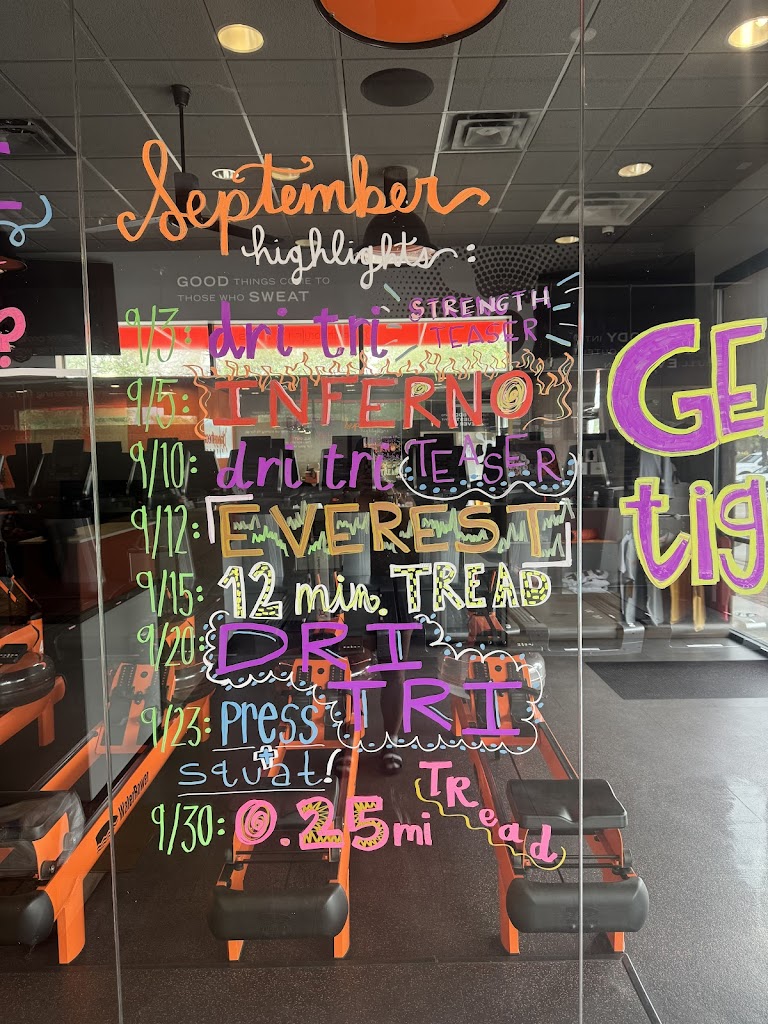 September
highlights:
GOOD THINGS COME TO
THOSE WHO SWEAT
9/3: dri tri STRENGTH TEASER
9/5: INFERNO
9/10: dri tri TEASER
9/12: EVEREST
9/15: 12 min. TREAD
9/20: DRI TRI
9/23: press + squat!
9/30: 0.25 mi Tread
?
GE
tig
WaterRower